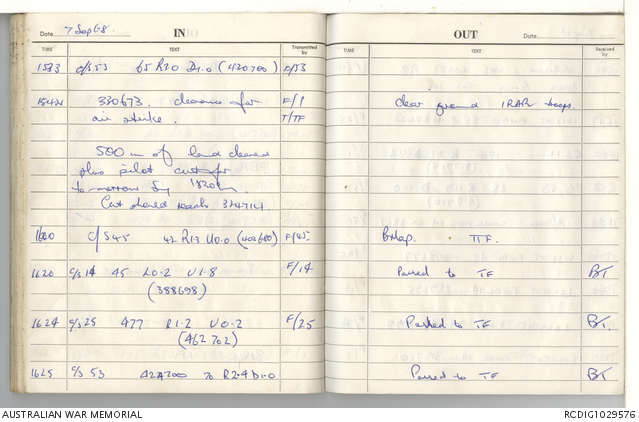 Date 7 Sept 68 IN
TIME TEXT Transmitted by
1533 c/s 53 65 R3.0 D1.0 (420700) F/53
330673. clearance for F/1
air strike. T/TF
500 m of land cleared
plus pilot cut for
to-morrow by 1820h.
Cut should reach 344714
1600 C/S 45 42 R1.7 U0.0 (404680) F/45
1620 c/s 14 45 L0.2 U1.8 F/14
(388698)
1624 c/s 25 477 R1.2 U0.2 F/25
(462702)
1625 c/s 53 424700 to R2.4 D1.0
OUT Date
TIME TEXT Received by
Clear ground 1RAR troops.
TF.
Passed to TF BT
Passed to TF BT.
Passed to TF BT
AUSTRALIAN WAR MEMORIAL RCDIG1029576